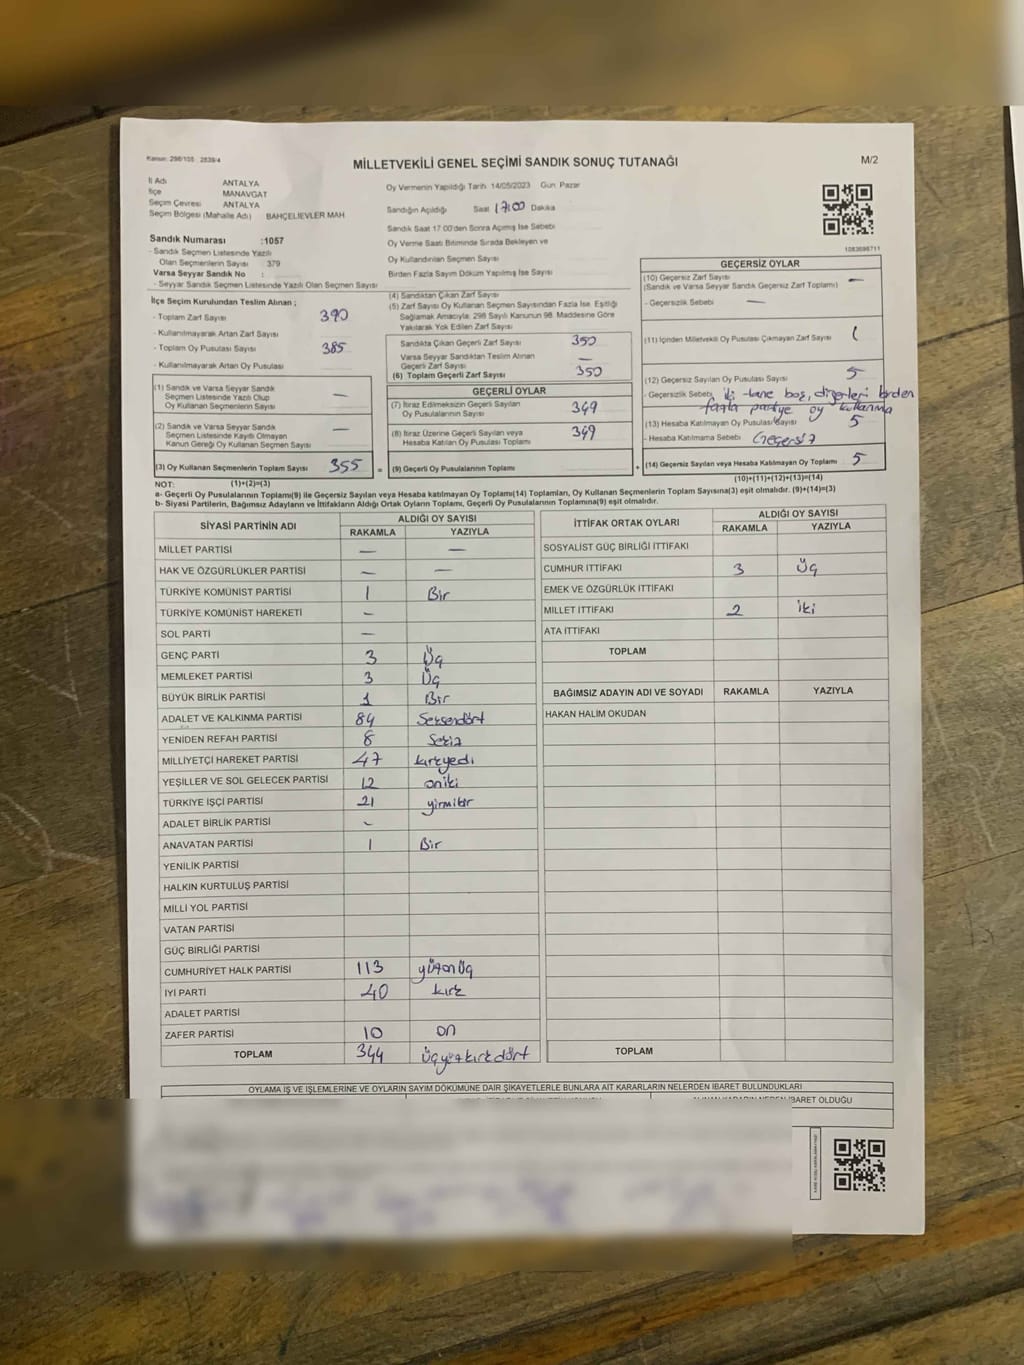 Kanun: 298/105 2839/4
MİLLETVEKİLİ GENEL SEÇİMİ SANDIK SONUÇ TUTANAĞI
M/2
İl Adı ANTALYA
İlçe MANAVGAT
Seçim Çevresi ANTALYA
Seçim Bölgesi (Mahalle Adı) BAHÇELİEVLER MAH
Sandık Numarası :1057
- Sandık Seçmen Listesinde Yazılı
Olan Seçmenlerin Sayısı 379
Varsa Seyyar Sandık No :
- Seyyar Sandık Seçmen Listesinde Yazılı Olan Seçmen Sayısı
İlçe Seçim Kurulundan Teslim Alınan ;
- Toplam Zarf Sayısı 390
- Kullanılmayarak Artan Zarf Sayısı
- Toplam Oy Pusulası Sayısı 385
- Kullanılmayarak Artan Oy Pusulası
(1) Sandık ve Varsa Seyyar Sandık
Seçmen Listesinde Yazılı Olup
Oy Kullanan Seçmenlerin Sayısı —
(2) Sandık ve Varsa Seyyar Sandık
Seçmen Listesinde Kayıtlı Olmayan
Kanun Gereği Oy Kullanan Seçmen Sayısı —
(3) Oy Kullanan Seçmenlerin Toplam Sayısı 355 =
Oy Vermenin Yapıldığı Tarih 14/05/2023 Gün Pazar
Sandığın Açıldığı Saat 17:00 Dakika
Sandık Saat 17.00'den Sonra Açılmış İse Sebebi
Oy Verme Saati Bitiminde Sırada Bekleyen ve
Oy Kullandırılan Seçmen Sayısı
Birden Fazla Sayım Döküm Yapılmış İse Sayısı
(4) Sandıktan Çıkan Zarf Sayısı
(5) Zarf Sayısı Oy Kullanan Seçmen Sayısından Fazla İse, Eşitliği
Sağlamak Amacıyla, 298 Sayılı Kanunun 98. Maddesine Göre
Yakılarak Yok Edilen Zarf Sayısı
Sandıkta Çıkan Geçerli Zarf Sayısı 350
Varsa Seyyar Sandıktan Teslim Alınan
Geçerli Zarf Sayısı —
(6) Toplam Geçerli Zarf Sayısı 350
GEÇERLİ OYLAR
(7) İtiraz Edilmeksizin Geçerli Sayılan
Oy Pusulalarının Sayısı 349
(8) İtiraz Üzerine Geçerli Sayılan veya
Hesaba Katılan Oy Pusulaları Toplamı 349
(9) Geçerli Oy Pusulalarının Toplamı +
1083698711
GEÇERSİZ OYLAR
(10) Geçersiz Zarf Sayısı
(Sandık ve Varsa Seyyar Sandık Geçersiz Zarf Toplamı) —
- Geçersizlik Sebebi —
(11) İçinden Milletvekili Oy Pusulası Çıkmayan Zarf Sayısı
(12) Geçersiz Sayılan Oy Pusulası Sayısı 5
- Geçersizlik Sebebi iki tane boş, diğerleri birden
fazla partiye oy kullanma
(13) Hesaba Katılmayan Oy Pusulası Sayısı 5
- Hesaba Katılmama Sebebi Geçersiz
(14) Geçersiz Sayılan veya Hesaba Katılmayan Oy Toplamı 5
NOT: (1)+(2)=(3) (10)+(11)+(12)+(13)=(14)
a- Geçerli Oy Pusulalarının Toplamı(9) ile Geçersiz Sayılan veya Hesaba katılmayan Oy Toplamı(14) Toplamları, Oy Kullanan Seçmenlerin Toplam Sayısına(3) eşit olmalıdır. (9)+(14)=(3)
b- Siyasi Partilerin, Bağımsız Adayların ve İttifakların Aldığı Ortak Oyların Toplamı, Geçerli Oy Pusulalarının Toplamına(9) eşit olmalıdır.
SİYASİ PARTİNİN ADI ALDIĞI OY SAYISI
RAKAMLA YAZIYLA
MİLLET PARTİSİ — —
HAK VE ÖZGÜRLÜKLER PARTİSİ — —
TÜRKİYE KOMÜNİST PARTİSİ 1 Bir
TÜRKİYE KOMÜNİST HAREKETİ —
SOL PARTİ —
GENÇ PARTİ 3 Üç
MEMLEKET PARTİSİ 3 Üç
BÜYÜK BİRLİK PARTİSİ 1 Bir
ADALET VE KALKINMA PARTİSİ 84 Seksendört
YENİDEN REFAH PARTİSİ 8 Sekiz
MİLLİYETÇİ HAREKET PARTİSİ 47 kırkyedi
YEŞİLLER VE SOL GELECEK PARTİSİ 12 oniki
TÜRKİYE İŞÇİ PARTİSİ 21 yirmibir
ADALET BİRLİK PARTİSİ -
ANAVATAN PARTİSİ 1 Bir
YENİLİK PARTİSİ
HALKIN KURTULUŞ PARTİSİ
MİLLİ YOL PARTİSİ
VATAN PARTİSİ
GÜÇ BİRLİĞİ PARTİSİ
CUMHURİYET HALK PARTİSİ 113 yüzonüç
İYİ PARTİ 40 kırk
ADALET PARTİSİ
ZAFER PARTİSİ 10 on
TOPLAM 344 üçyüzkırkdört
İTTİFAK ORTAK OYLARI ALDIĞI OY SAYISI
RAKAMLA YAZIYLA
SOSYALİST GÜÇ BİRLİĞİ İTTİFAKI
CUMHUR İTTİFAKI 3 Üç
EMEK VE ÖZGÜRLÜK İTTİFAKI
MİLLET İTTİFAKI 2 iki
ATA İTTİFAKI
TOPLAM
BAĞIMSIZ ADAYIN ADI VE SOYADI RAKAMLA YAZIYLA
HAKAN HALİM OKUDAN
TOPLAM
OYLAMA İŞ VE İŞLEMLERİNE VE OYLARIN SAYIM DÖKÜMÜNE DAİR ŞİKAYETLERLE BUNLARA AİT KARARLARIN NELERDEN İBARET BULUNDUKLARI
İBARET OLDUĞU